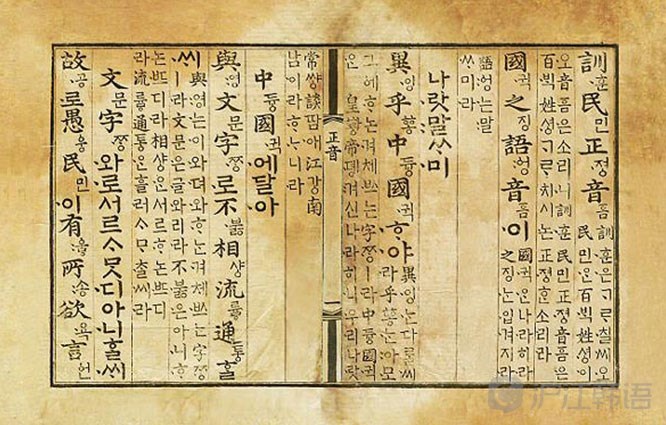 訓훈民민正졍音흠 訓훈은ᄀᆞᄅᆞ칠씨오
民민은百ᄇᆡᆨ姓셩이
오音흠은소리니訓훈民민正졍音흠은
百ᄇᆡᆨ姓셩ᄀᆞᄅᆞ치시논正졍ᄒᆞᆫ소리라
國귁之징語ᅌᅥᆼ音흠이 國귁은나라히라
之징ᄂᆞᆫ입겨지라
語ᅌᅥᆼ는말
ᄊᆞ미라
나랏말ᄊᆞ미
異잉乎ᅘᅩᆼ中듕國귁ᄒᆞ야 異잉ᄂᆞᆫ다ᄅᆞᆯ씨
라乎ᅘᅩᆼ는아모
그ᅌᅦᄒᆞ논겨체ᄡᅳ는字ᄍᆞᆼㅣ라中듕國귁
은皇황帝뎽겨신나라히니우리나랏
正音
常썅談땀애江강南
남이라ᄒᆞᄂᆞ니라
中듕國귁에달아
與영文문字ᄍᆞᆼ로不붏相샹流륳通통ᄒᆞᆯ
씨 與영는이와뎌와ᄒᆞ논겨체ᄡᅳ는字ᄍᆞᆼ
ㅣ라文문은글와리라不붏은아니ᄒᆞ
논ᄠᅳ디라相샹ᄋᆞᆫ서르ᄒᆞ논ᄠᅳ디
라流륳通통ᄋᆞᆫ흘러ᄉᆞᄆᆞᄎᆞᆯ씨라
文문字ᄍᆞᆼ와로서르ᄉᆞᄆᆞᆺ디아니ᄒᆞᆯᄊᆡ
故공로愚웅民민이有ᅌᅮᇢ所송欲욕言언
沪江韩语